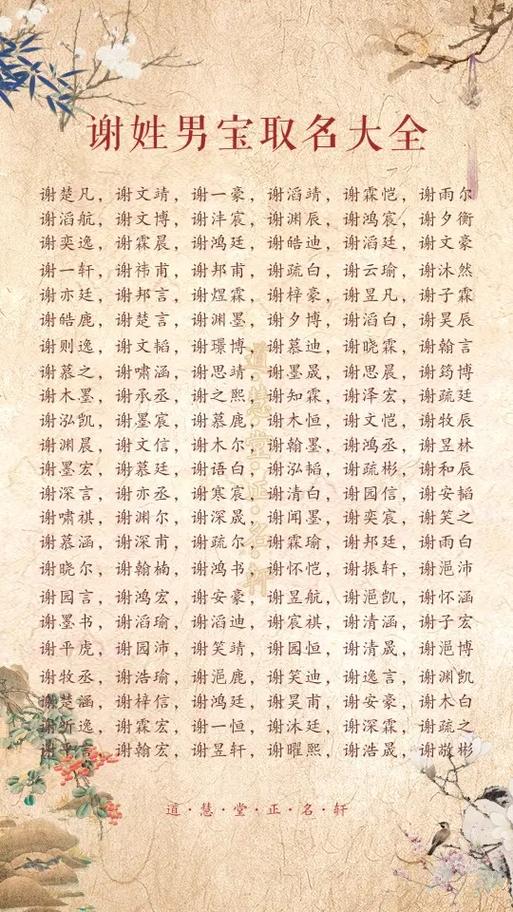 谢姓男宝取名大全
谢楚凡，谢文靖，谢一豪，谢滔靖，谢霖恺，谢雨尔
谢滔航，谢文博，谢沣宸，谢渊辰，谢鸿宸，谢夕衡
谢奕逸，谢霖晨，谢鸿廷，谢皓迪，谢滔廷，谢文豪
谢一轩，谢祎甫，谢邦甫，谢疏白，谢云瑜，谢沐然
谢亦廷，谢邦言，谢煜霖，谢梓豪，谢昱凡，谢子霖
谢皓鹿，谢楚言，谢渊墨，谢夕博，谢滔白，谢昊辰
谢则逸，谢文韬，谢璟博，谢慕迪，谢晓霖，谢翰言
谢慕之，谢啸涵，谢思靖，谢墨晟，谢思晨，谢筠博
谢木墨，谢承丞，谢之熙，谢知霖，谢泽宏，谢疏廷
谢泓凯，谢墨宸，谢慕鹿，谢木恒，谢文恺，谢牧辰
谢渊晨，谢文信，谢木尔，谢翰墨，谢鸿丞，谢昱林
谢墨宏，谢慕廷，谢语白，谢泓韬，谢疏彬，谢和辰
谢深言，谢亦丞，谢寒宸，谢清白，谢园信，谢安韬
谢啸祺，谢渊尔，谢深晟，谢闻墨，谢奕宸，谢笑之
谢慕涵，谢深甫，谢疏尔，谢霖瑜，谢邦廷，谢雨白
谢晓尔，谢翰楠，谢鸿书，谢怀恺，谢振轩，谢浥沛
谢园言，谢鸿宏，谢安豪，谢昱航，谢浥凯，谢怀涵
谢墨书，谢滔瑜，谢滔迪，谢宸祺，谢清涵，谢子宏
谢平虎，谢园沛，谢笑靖，谢园恒，谢清晟，谢浥博
谢牧丞，谢浩瑜，谢浥鹿，谢笑迪，谢逸言，谢渊凯
谢楚涵，谢梓信，谢鸿廷，谢昊甫，谢安豪，谢木白
谢沂逸，谢霖宏，谢一恒，谢沐廷，谢深霖，谢疏之
谢平言，谢翰宏，谢昱轩，谢曜熙，谢浩晟，谢敬彬
道·慧·堂·正·名·轩
道·慧·堂·正·名·轩